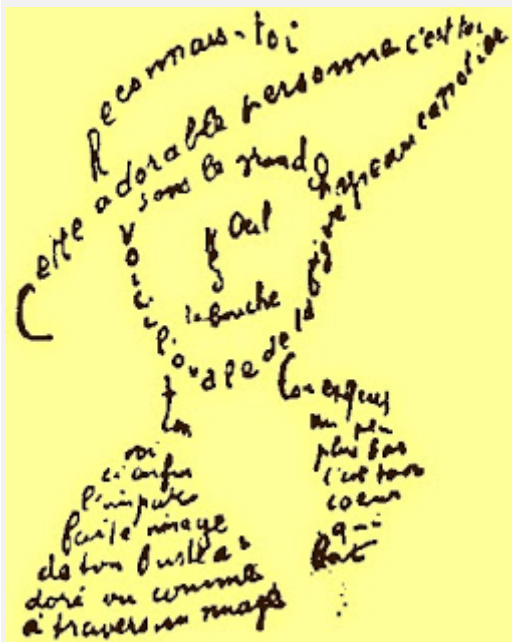 Reconnais-toi
Cette adorable personne c'est toi
sous le grand chapeau canotier
Œil
Nez
la bouche
Voici l'ovale de ta figure
ton
Cou exquis
voi
ci enfin
l'impar
faite image
de ton buste a
doré vu comme
à travers un nuage
un peu
plus bas
c'est ton
coeur
qui
bat